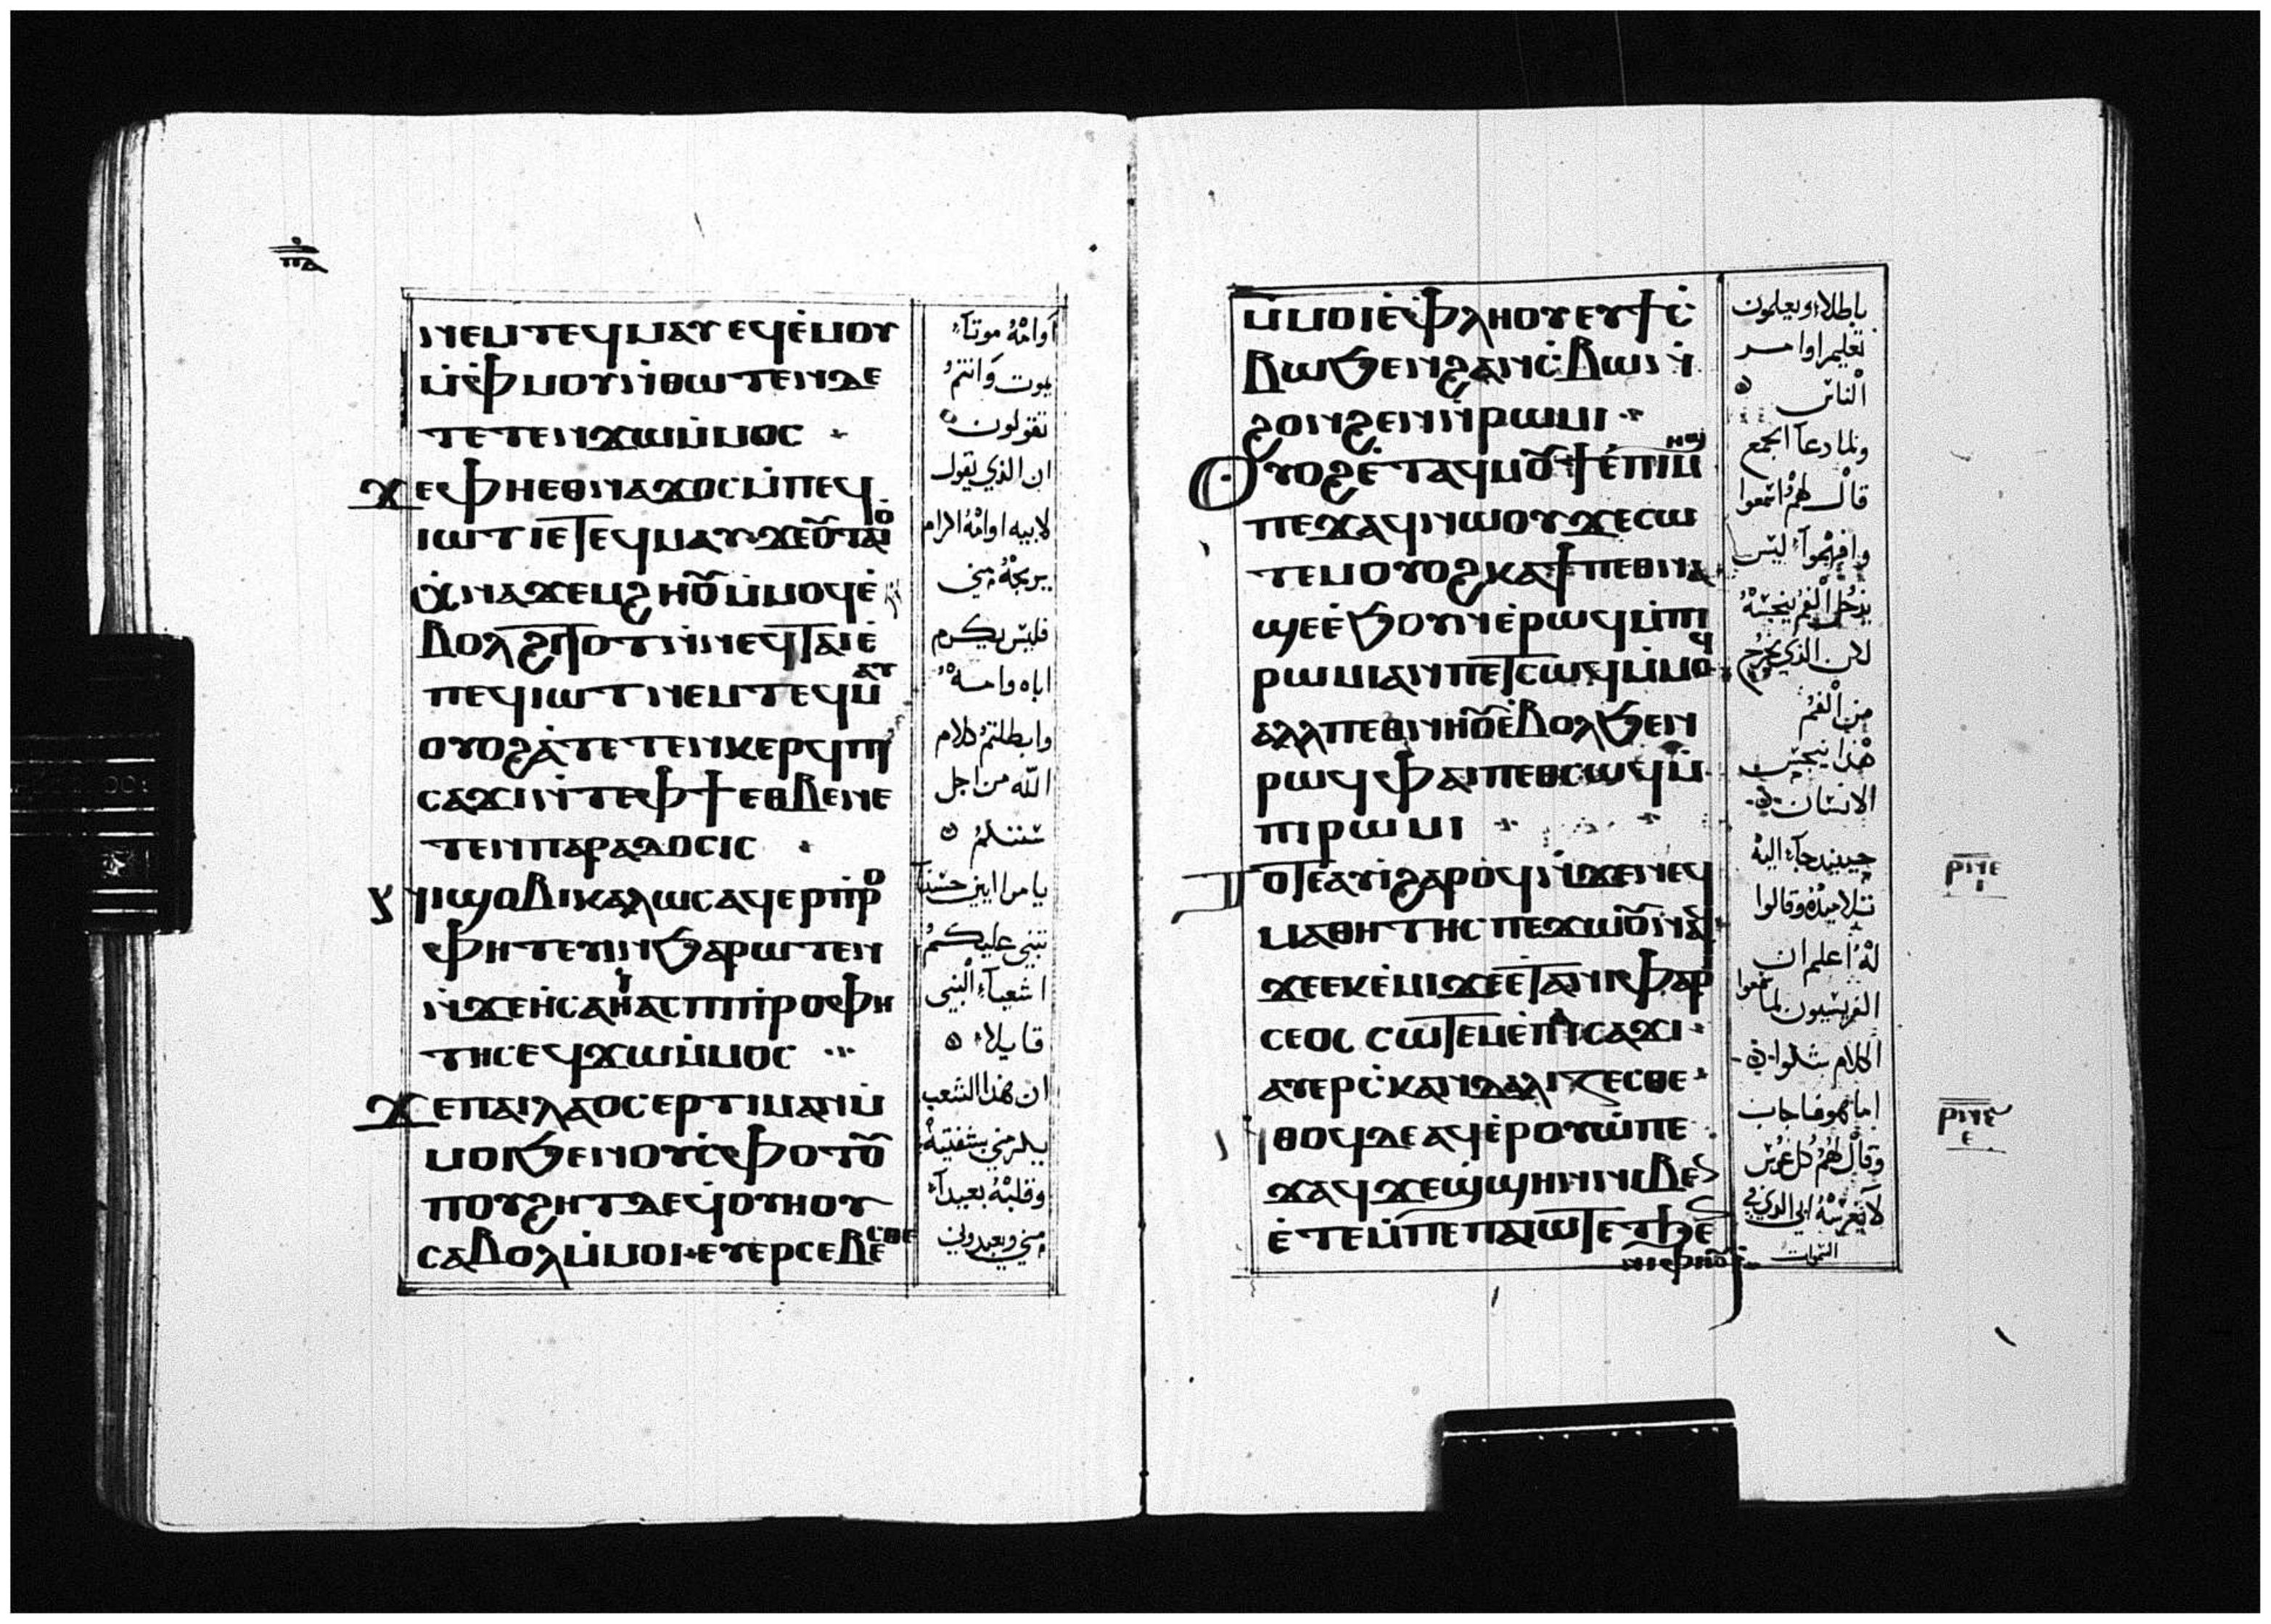 ⲡⲁ
ⲛⲉⲙⲧⲉϥⲙⲁⲩⲉϥⲉ̀ⲙⲟⲩ
ⲙ̀ⲫⲙⲟⲩⲛ̀ⲑⲱⲧⲉⲛⲇⲉ
ⲧⲉⲧⲉⲛϫⲱⲙ̀ⲙⲟⲥ
ϫⲉⲫⲏⲉⲑⲛⲁϫⲟⲥⲙ̀ⲡⲉϥ
ⲓⲱⲧⲓⲉⲧⲉϥⲙⲁⲩ
ϥ̀ⲛⲁϫⲉⲙϩⲏⲟⲩⲙ̀ⲙⲟϥⲉ̀
ⲃⲟⲗϩⲓⲧⲟⲧⲛ̀ⲛⲉϥⲧⲁⲓⲉ̀
ⲡⲉϥⲓⲱⲧⲛⲉⲙⲧⲉϥⲙⲁⲩ
ⲟⲩⲟϩⲁ̀ⲧⲉⲧⲉⲛⲕⲉⲣϥⲡⲓ
ⲥⲁϫⲓⲛ̀ⲧⲉⲫϯⲉⲑⲃⲉⲛⲉ
ⲧⲉⲛⲡⲁⲣⲁⲇⲟⲥⲓⲥ
ⲛⲓϣⲟⲃⲓⲕⲁⲗⲱⲥⲁϥⲉⲣⲡ̀ⲣⲟ
ⲫⲏⲧⲉⲩⲓⲛϧⲁⲣⲱⲧⲉⲛ
ⲛ̀ϫⲉⲏ̀ⲥⲁⲏ̀ⲁⲥⲡⲓⲡ̀ⲣⲟⲫⲏ
ⲧⲏⲥⲉϥϫⲱⲙ̀ⲙⲟⲥ
ϫⲉⲡⲁⲓⲗⲁⲟⲥⲉⲣⲧⲓⲙⲁⲛⲙ̀
ⲙⲟⲓϧⲉⲛⲛⲟⲩⲥ̀ⲫⲟⲧⲟⲩ
ⲡⲟⲩϩⲏⲧⲇⲉϥ̀ⲟⲩⲏⲟⲩ
ⲥⲁⲃⲟⲗⲙ̀ⲙⲟⲓⲉⲩⲉⲣⲥⲉⲃⲉⲥⲑⲉ
اوامه موتاء
يموت وانتم
تقولون
ان الذي يقول
لابيه اوامه
يربحه مني
فليس يكرم
اباه وامه
وابطلتم كلام
الله من اجل
سننكم
يامراايين حسنا
تنبى عليكم
اشعياء النبى
قايلا
ان هذا الشعب
يكرمني بشفتيه
وقلبه بعيدا
مني ويعبدوني
ⲙ̀ⲙⲟⲓⲉ̀ⲫⲗⲏⲟⲩⲉⲩϯⲥ̀
ⲃⲱϧⲉⲛϩⲁⲛⲥ̀ⲃⲱⲛ̀
ϩⲟⲛϩⲉⲛⲛ̀ⲣⲱⲙⲓ
ⲟⲩⲟϩⲉ̀ⲧⲁϥⲙⲟⲩϯⲉ̀ⲡⲓⲙⲏϣ
ⲡⲉϫⲁϥⲛⲱⲟⲩϫⲉⲥⲱ
ⲧⲉⲙⲟⲩⲟϩⲕⲁϯⲡⲉⲑⲛⲁ
ϣⲉⲉ̀ϧⲟⲩⲛⲉ̀ⲣⲱϥⲙ̀ⲡⲓ
ⲣⲱⲙⲓⲁⲛⲡⲉⲧⲥⲱϥⲙ̀ⲙⲟϥ
ⲁⲗⲗⲡⲉⲑⲛⲏⲟⲩⲉ̀ⲃⲟⲗϧⲉⲛ
ⲣⲱϥⲫⲁⲓⲡⲉⲑⲥⲱϥⲙ̀
ⲡⲓⲣⲱⲙⲓ
ⲧⲟⲧⲉⲁⲩⲓ̀ϩⲁⲣⲟϥⲛ̀ϫⲉⲛⲉϥ
ⲙⲁⲑⲏⲧⲏⲥⲡⲉϫⲱⲟⲩⲛⲁϥ
ϫⲉⲉⲕⲉ̀ⲙⲓϫⲉⲉ̀ⲧⲁⲛⲓⲫⲁⲣ
ⲥⲉⲟⲥⲥⲱⲧⲉⲙⲉ̀ⲡⲁⲓⲥⲁϫⲓ
ⲁⲩⲉⲣⲥ̀ⲕⲁⲛⲇⲁⲗⲓⲍⲉⲥⲑⲉ
ⲛⲑⲟϥⲇⲉⲁϥⲉ̀ⲣⲟⲩⲱ̀ⲡⲉ
ϫⲁϥϫⲉϣ̀ϣⲏⲛⲛⲓⲃⲉ
ⲉ̀ⲧⲉⲙ̀ⲡⲉⲡⲁⲓⲱⲧⲉⲧϧⲉ
ⲛⲓⲫⲏⲟⲩⲓ
باطلا ويعلمون
تعليم اوامر
الناس
ولما دعا الجمع
قال لهم اسمعوا
وافهموا ليس
يدخل الفم ينجسه
لان الذي يخرج
من الفم
هذا ينجس
الانسان
حينيد جاء اليه
تلاميذه وقالوا
له اعلم ان
الفريسيون لما سمعوا
الكلام شكوا
اما هو فاجاب
وقال لهم كل غرس
لا يغرسه ابي الذي في
السموات
ⲣⲛⲉ
ⲓ
ⲣⲛⲋ
ⲉ